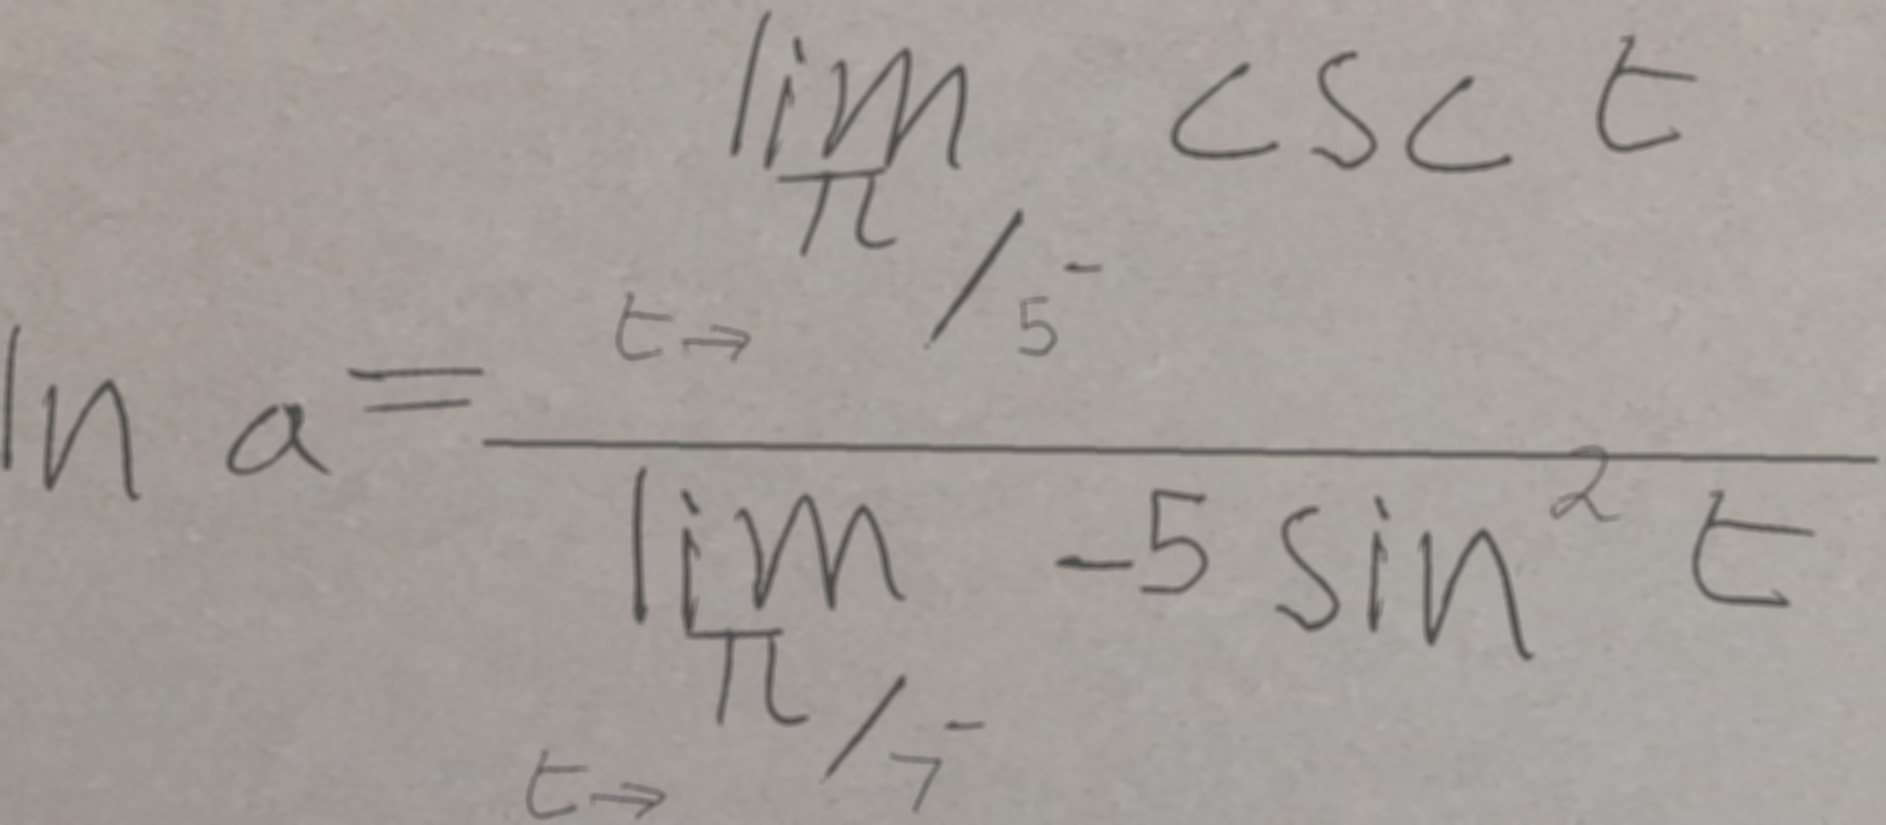 \ln a = \frac{\lim_{t \to \pi/5^-} \csc t}{\lim_{t \to \pi/7^-} -5 \sin^2 t}